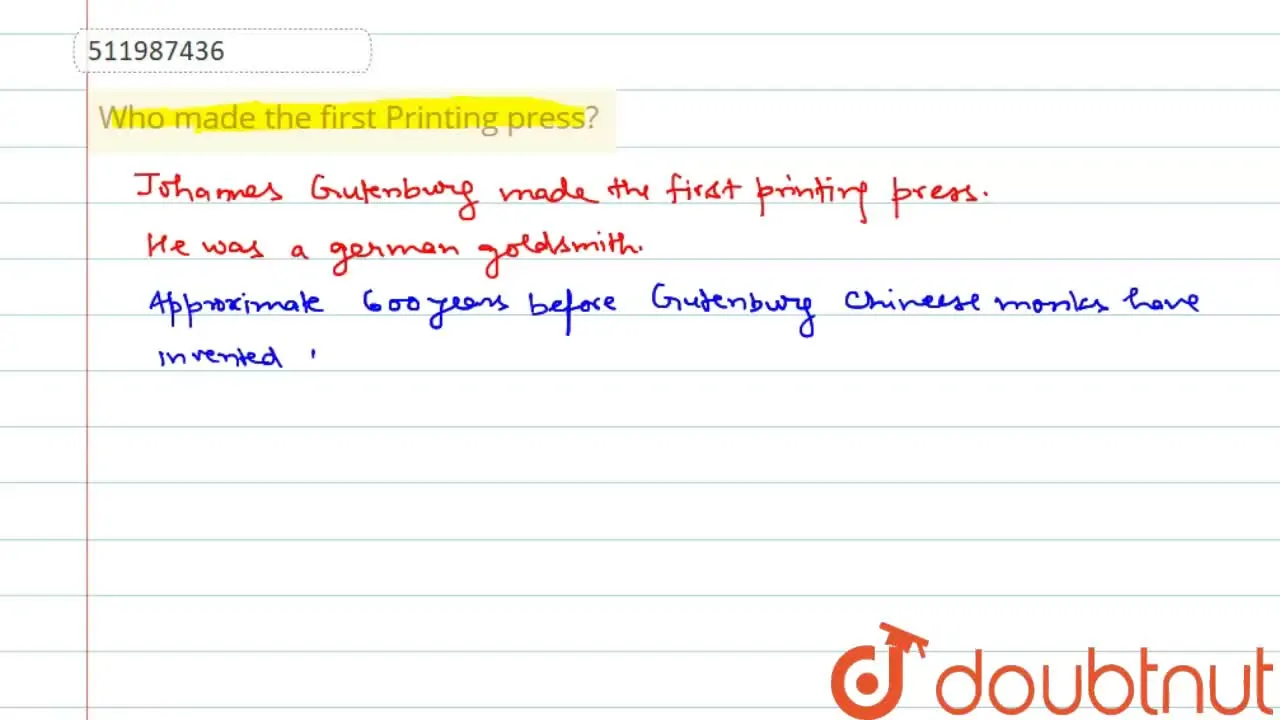 511987436
Who made the first Printing press?
Johannes Gutenburg made the first printing press.
He was a german goldsmith.
Approximate 600 years before Gutenburg Chineese monks have
invented
doubtnut